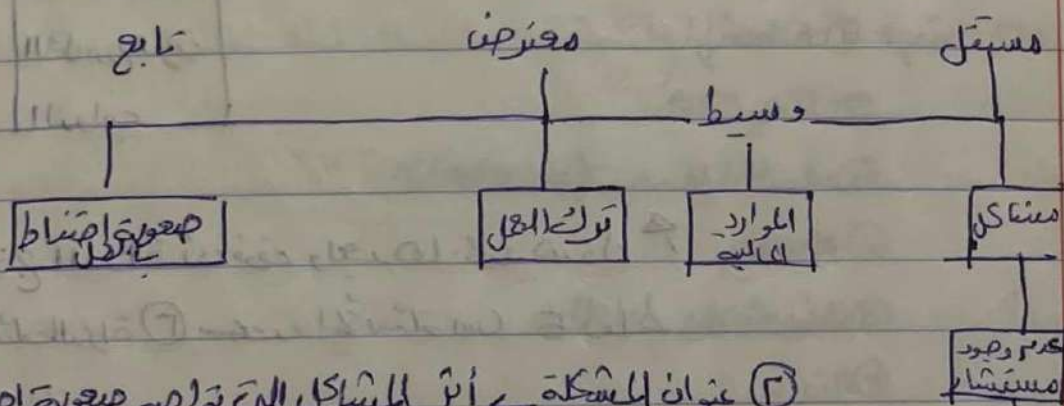 مستقل معترض تابع
وسيط
مشاكل الموارد المالية ترك العمل صعوبة
عدم وجود مستشار
② عنوان المشكلة - أثر المشاكل التي تواجه صعوبة